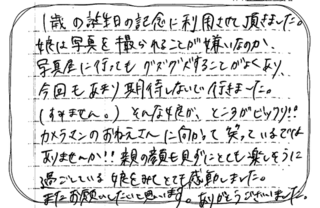 1歳の誕生日の記念に利用させて頂きました。
娘は写真を撮られることが嫌いなのか、
写真屋に行ってもグズグズすることが多くあり、
今回もあまり期待しないで行きました。
(すみません。)そんな娘が、ところがビックリ!!
カメラマンのおねえさんに向かって笑っているでは
ありませんか!!親の顔も見ずにとても楽しそうに
過ごしている娘をみてとても感動しました。
またお願いしたいと思います。ありがとうございました。